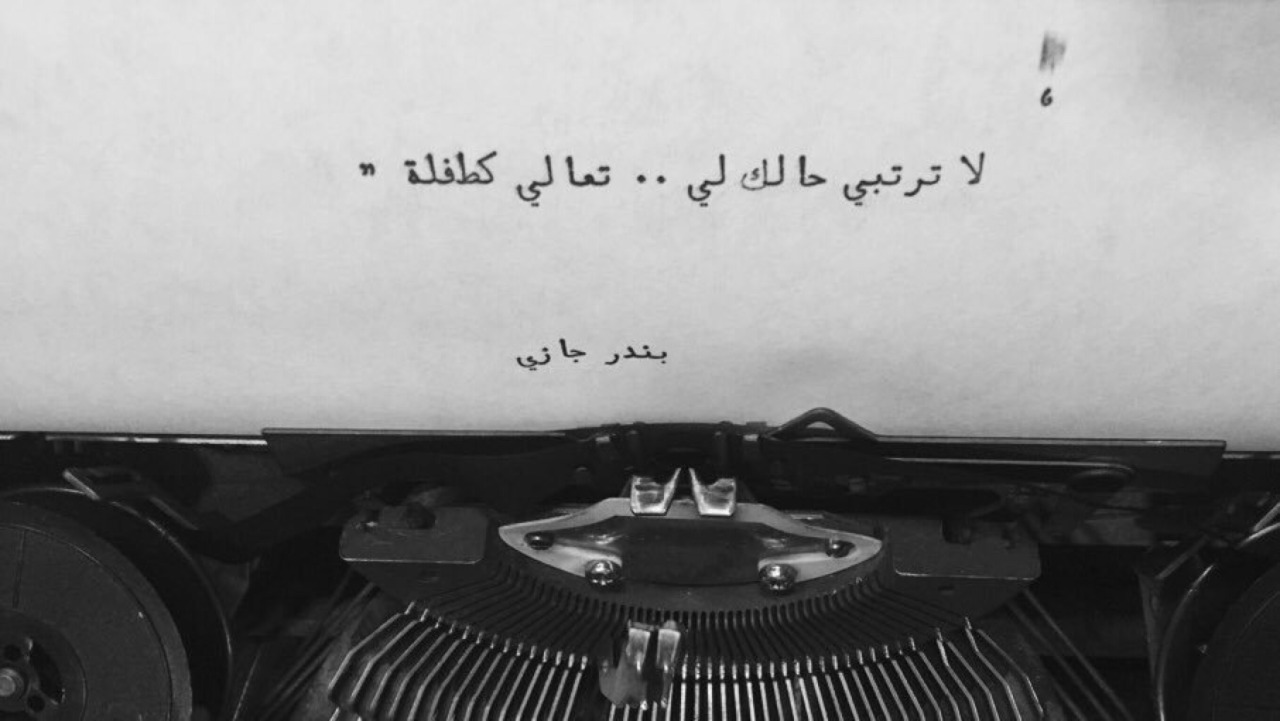 6
لا ترتبي حالك لي .. تعالي كطفلة "
بندر جازي